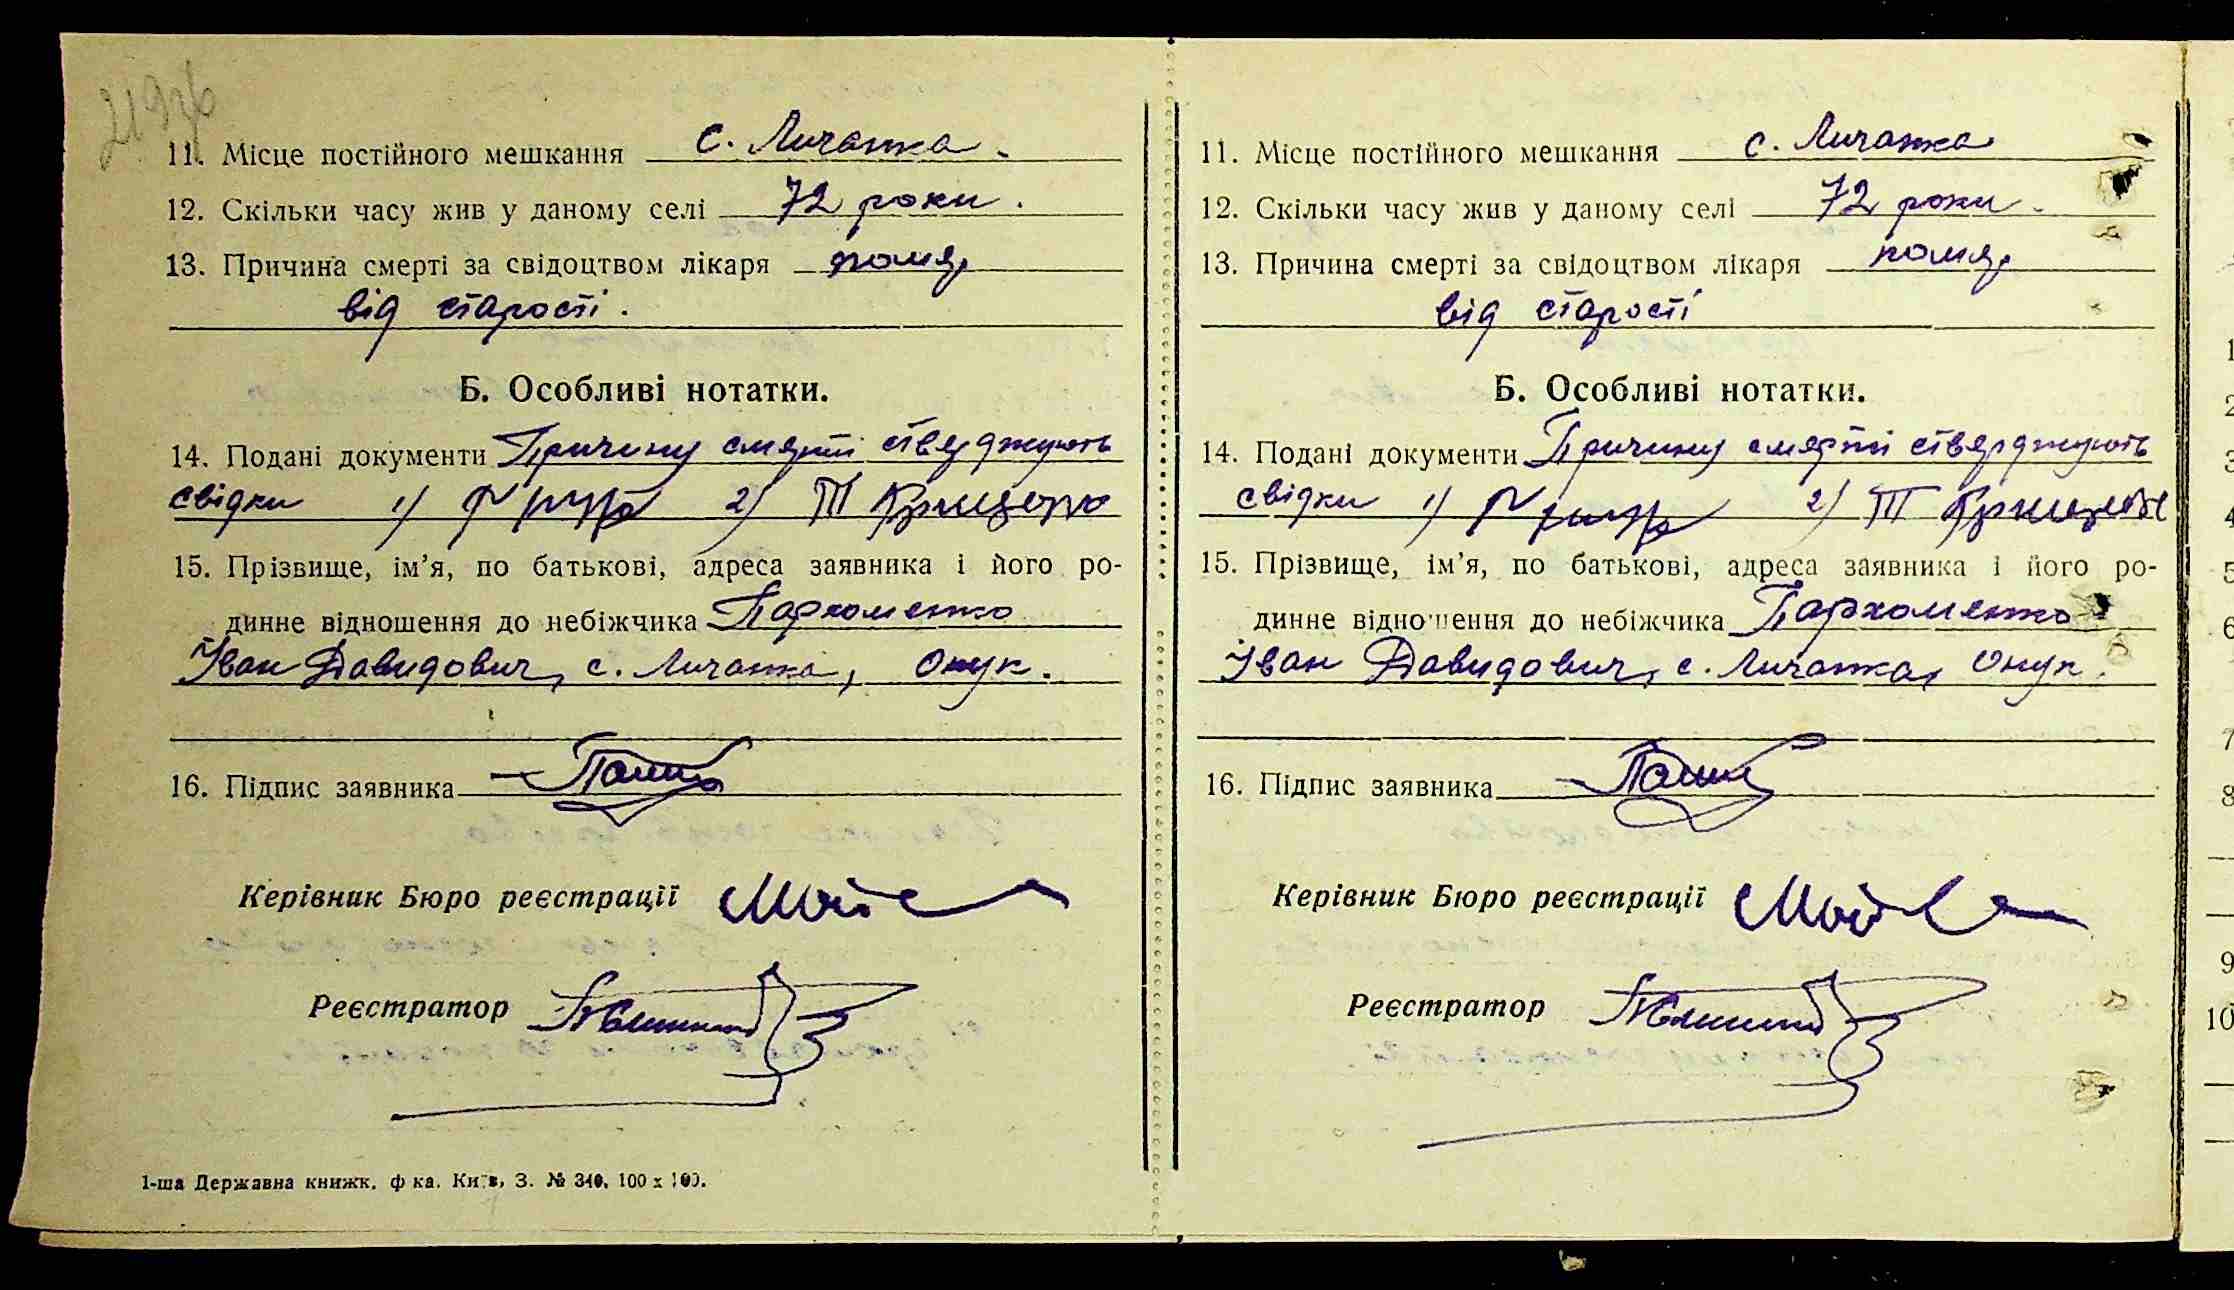 11. Місце постійного мешкання с. Личанка.
12. Скільки часу жив у даному селі 72 роки.
13. Причина смерті за свідоцтвом лікаря помер
від старості.
Б. Особливі нотатки.
14. Подані документи Причину смерті стверджують
свідки 1) 2) Т
15. Прізвище, ім'я, по батькові, адреса заявника і його ро-
динне відношення до небіжчика Пархоменко
Іван Давидович, с. Личанка, Онук.
16. Підпис заявника
Керівник Бюро реєстрації
Реєстратор
1-ша Державна книжк. ф ка. Київ, З. № 340. 100 х 100.
11. Місце постійного мешкання с. Личанка
12. Скільки часу жив у даному селі 72 роки.
13. Причина смерті за свідоцтвом лікаря помер
від старості
Б. Особливі нотатки.
14. Подані документи Причину смерті стверджують
свідки 1) 2) Т
15. Прізвище, ім'я, по батькові, адреса заявника і його ро-
динне відношення до небіжчика Пархоменко
Іван Давидович, с. Личанка, Онук.
16. Підпис заявника
Керівник Бюро реєстрації
Реєстратор
1
2
3
4
5
6
7
8
9
10